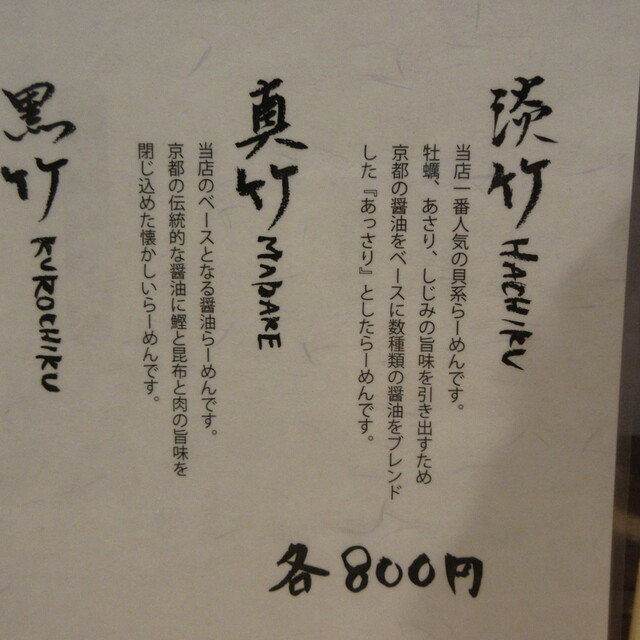 淡竹 HACHIKU
当店一番人気の貝系らーめんです。
牡蠣、あさり、しじみの旨味を引き出すため
京都の醤油をベースに数種類の醤油をブレンド
した『あっさり』としたらーめんです。
真竹 MADAKE
当店のベースとなる醤油らーめんです。
京都の伝統的な醤油に鰹と昆布と肉の旨味を
閉じ込めた懐かしいらーめんです。
黒竹 KUROCHIKU
各800円